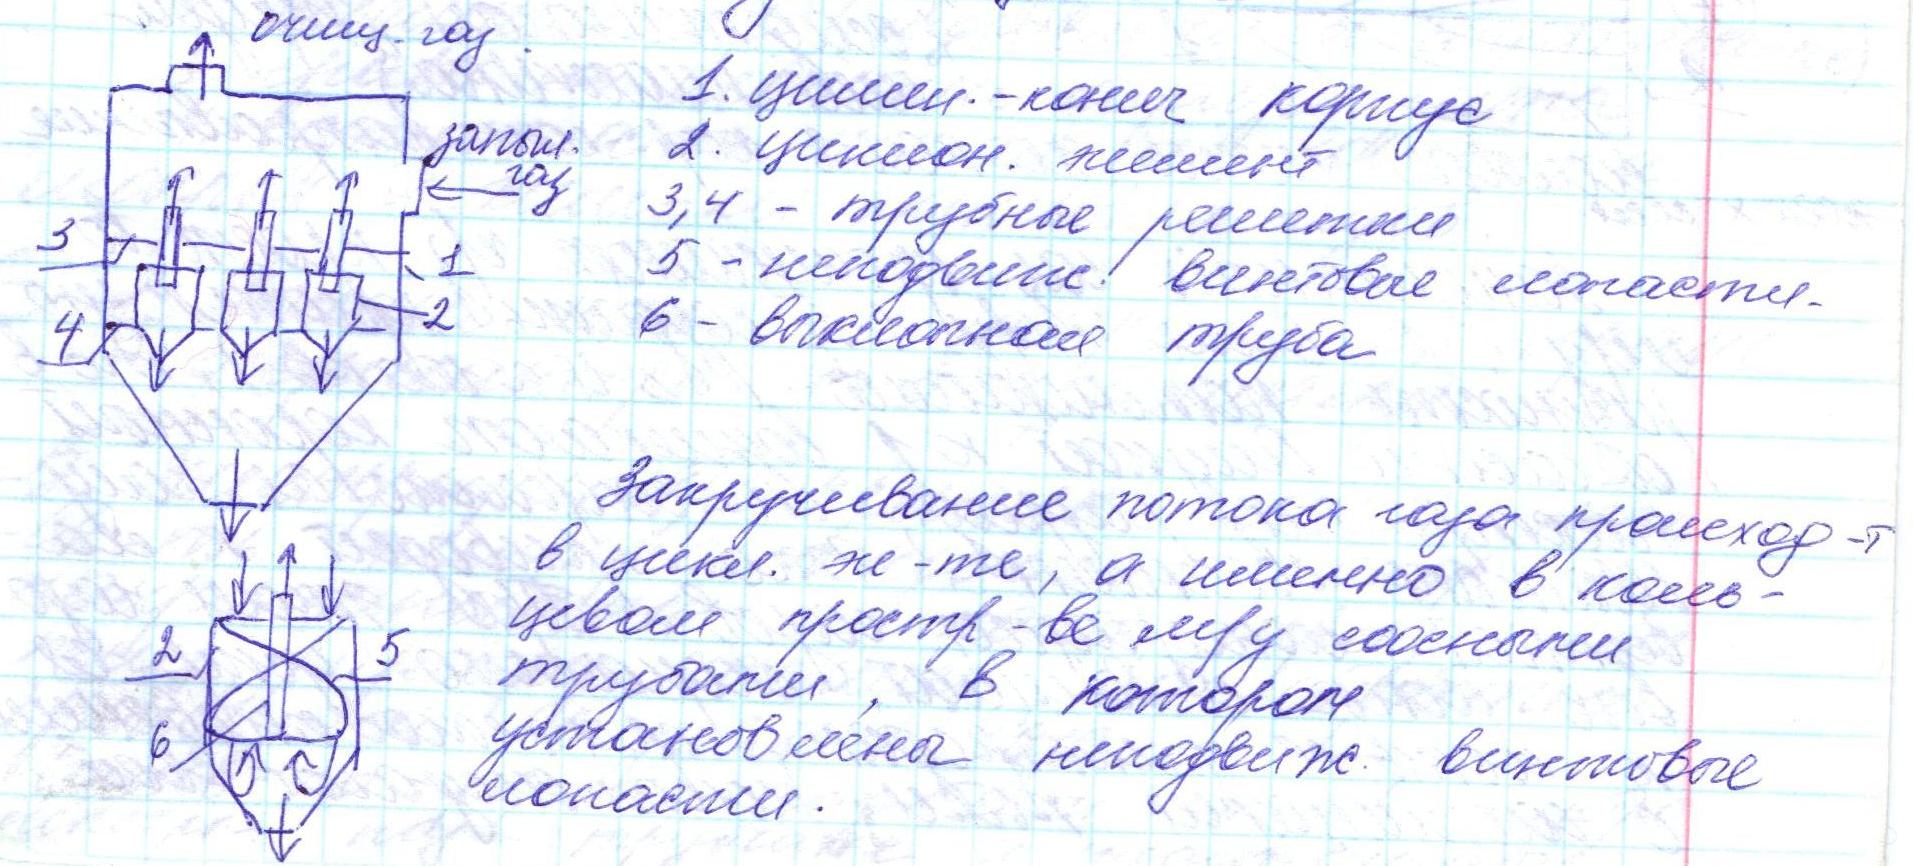 очищ. газ.
запыл.
газ
3
1
4
2
1. цилин.-конич корпус
2. циклон. элемент
3,4 - трубные решетки
5 - неподвиж. винтовые лопасти.
6 - выхлопная труба
Закручивание потока газа происход-т
в цикл. эл-те, а именно в коль-
цевом простр-ве м/у соосными
трубами, в котором
установлены неподвиж. винтовые
лопасти.
2
5
6